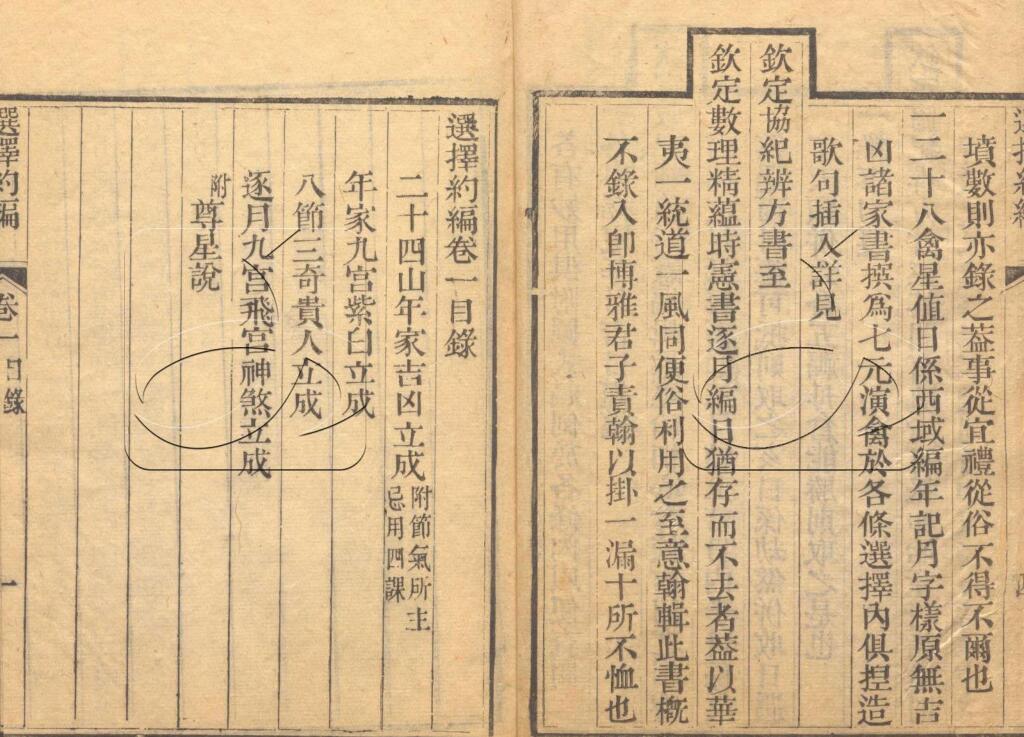 墳數則亦錄之葢事從宜禮從俗不得不爾也
一二十八禽星值日係西域編年記月字樣原無吉
凶諸家書撰爲七元演禽於各條選擇內俱捏造
歌句插入詳見
欽定協紀辨方書至
欽定數理精蘊時憲書逐月編日猶存而不去者葢以華
夷一統道一風同便俗利用之至意翰輯此書槪
不錄入卽博雅君子責翰以掛一漏十所不恤也
選擇約編卷一目錄
二十四山年家吉凶立成附節氣所主
忌用四課
年家九宮紫白立成
八節三奇貴人立成
逐月九宮飛宮神煞立成
附尊星說
選擇約編
卷一目錄
一